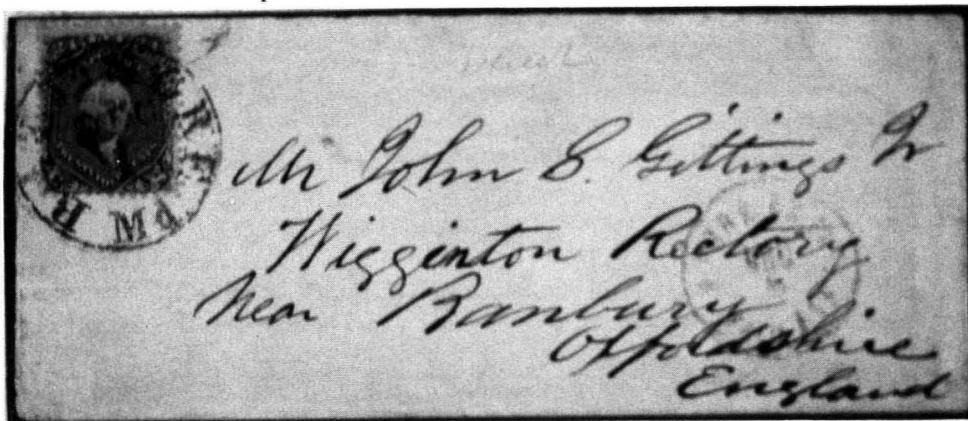 Mr John S. Gittings Jr
Wigginton Rectory
Near Banbury
Oxfordshire
England